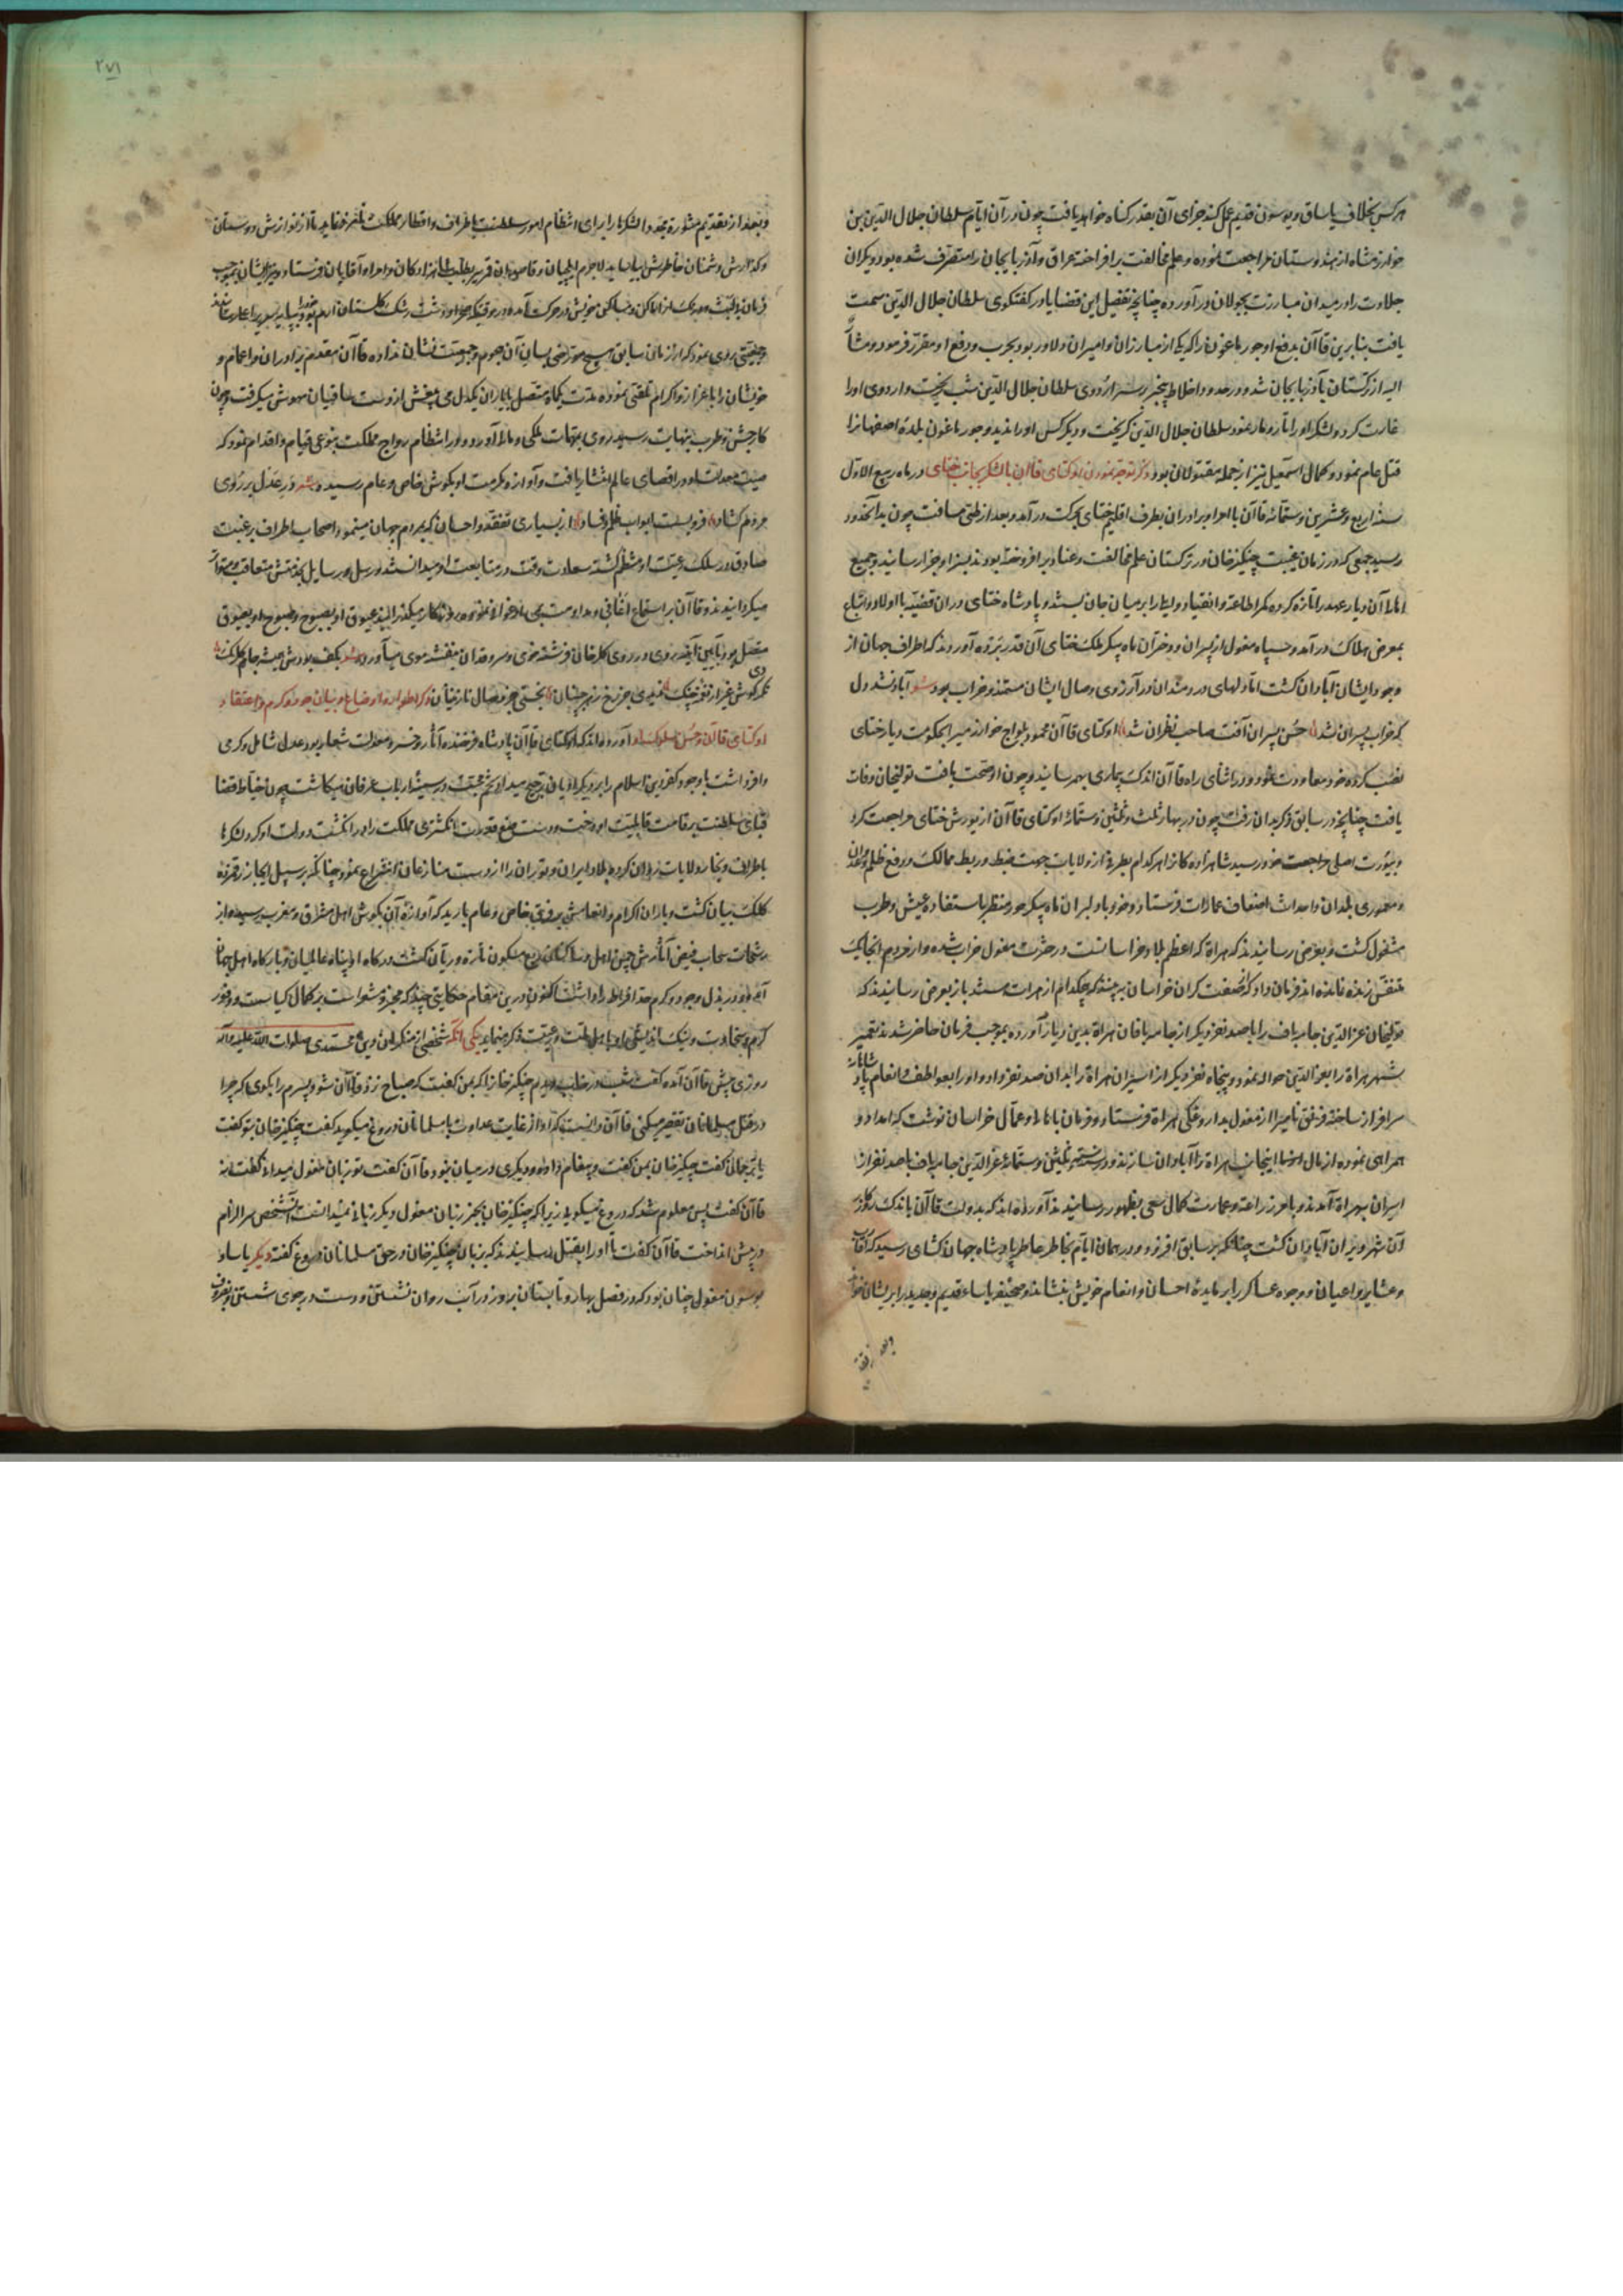 هرکس بخلاف یاساق و یوسون قدیم عمل کند جزای آن بقدر گناه خواهد یافت چون در آن ایام سلطان جلال الدین بن
خوارزمشاه از هندوستان مراجعت نموده و علم مخالفت برافراخته عراق و آذربایجان را متصرف شده بود و یکران
جلادت را در میدان مبارزت بجولان درآورده چنانچه تفصیل این قضایا در گفتگوی سلطان جلال الدین سمت
یافت بنابرین قاآن بدفع او جورماغون را که یکی از مبارزان و امیران دلاور بود بحرب و دفع او مقرر فرمود و مشار
الیه از ترکستان بآذربایجان شد و در حدود اخلاط بیخبر بر سر اردوی سلطان جلال الدین شب ریخت و اردوی او را
غارت کرد و لشکر او را تارومار نمود سلطان جلال الدین گریخت و دیگر کس او را ندید و جورماغون بلدهٔ اصفهانرا
قتل عام نمود و کمال اسمعیل نیز از جمله مقتولان بود ذکر توجه نمودن اوکتای قاآن با لشکر بجانب ختای در ماه ربیع الاول
سنه اربع و عشرین و ستمائه قاآن با امرا و برادران بطرف اقلیم ختای بحرکت درآمد و بعد از طی مسافت چون بدانحدود
رسید جمعی که در زمان غیبت چنگیزخان در ترکستان علم مخالفت و عناد برافروخته بودند بسزا و جزا رسانید و جمیع
اهل آن دیار عهد را تازه کرده کمر اطاعت و انقیاد و ایثار بر میان جان بستند و پادشاه ختای در آن قضیه با اولاد و اتباع
بمعرض هلاک درآمد و سپاه مغول از پسران و دختران ماه پیکر ملک ختای آن قدر برده آوردند که اطراف جهان از
وجود ایشان آبادان گشت اما دلهای دردمندان در آرزوی وصال ایشان مستمند و خراب بود شعر آباد نشد دل
که خراب پسران شد حسن پسران آفت صاحب نظران شد اوکتای قاآن محمود یلواج خوارزمیرا بحکومت دیار ختای
نصب کرده خود معاودت نمود و در اثنای راه قاآن اندک بیماری بهم رسانید و چون او صحت یافت تولیخان وفات
یافت چنانچه در سابق ذکر بدان رفت چون در بهار ثلث و ثلثین و ستمائه اوکتای قاآن از یورش ختای مراجعت کرد
و بیورت اصلی مراجعت خود رسید شاهزاده کانرا هرکدام بطرفی از ولایات جهت ضبط و ربط ممالک و رفع ظلم و عدوان
و معموری بلدان و احداث اضعاف عمارات فرستاد و خود با دلبران ماه پیکر حور منظر باستیفاء عیش و طرب
مشغول گشت و بعرض رسانیدند که هراة که اعظم بلاد خراسانست در حشرت مغول خراب شده و از مردم انجا یک
متنفس زنده نمانده اند فرمان داد که صنعت گران خراسان هر چند که هر کدام از هرات باشد باز بعرض رسانیدند که
تولیخان عزالدین جامه باف را با صد نفر دیگر از جامه بافان هراة بدین دیار آورده بموجب فرمان حاضر شدند تعمیر
شهر هراة را بعزالدین حواله نمود و پنجاه نفر دیگر از اسیران هراة را بدان صد نفر داد و او را بعواطف و انعام پادشاهانه
سرافراز ساخته قرلق نامیرا از مغول بداروغگی هراة فرستاد و فرمان باهالی و عمال خراسان نوشت که امداد و
همراهی نموده از مال انجانب هراة را آبادان سازند و در سنه ست و ثلثین و ستمائه عزالدین جامه باف با صد نفر از
اسیران بهراة آمدند و بامر زراعت و عمارت کمال سعی بظهور رسانیدند آورده اند که بدولت قاآن باندک روزگار
آن شهر ویران آبادان گشت چنانکه بر سابق افزود و در همان ایام بخاطر عاطر پادشاه جهان کشای رسید که اقارب
و عشایر و اعیان و وجوه عساکر را بر مایدهٔ احسان و انعام خویش بنشاند و صحیفهٔ یاسای قدیم و جدید را بر ایشان خواند
و بعد از تقدیم
٢٧١
و بعد از تقدیم مشوره مجددا لشکرها را برای انتظام امور سلطنت باطراف و اقطار مملکت نامزد نماید تا از نوازش دوستان
و گدازش دشمنان خاطرش بیاساید لاجرم ایلچیان و قاصدان قمر سیر بطلب شاهزادگان و امرا و آقایان فرستاد و ایشان بموجب
فرمان هر یک از اماکن و مساکن خویش در حرکت آمده در موقتیکه صحرا و دشت رشک گلستان ارم بود بپایه سریر اعلی رسیدند
جمعیتی روی نمود که از زمان سابق هیچ مورخی بسان آن هجوم و جمعیت نشان نداده قاآن مقدم برادران و اعمام و
خویشان را باعزاز و اکرام تلقی نموده مدت یکماه متصل با یاران یکدل می بیغش از دست ساقیان مهوش میگرفت و چون
کار جشن و طرب بنهایت رسید روی بمهمات ملکی و مالی آورد و در انتظام رواج مملکت بنوعی قیام و اقدام نمود که
صیت معدلت او در اقصای عالم انتشار یافت و آوازه مکرمت او بگوش خاص و عام رسید شعر در عدل بر روی
مردم گشاد فرو بست ابواب ظلم و فساد از بسیاری تفقد و احسان که بمردم جهان مینمود اصحاب اطراف برغبت
صادق در سلک رعیت او منتظم گشته سعادت وقت در متابعت او میدانستند و رسل و رسایل بخدمتش متعاقب و متواتر
میگردانیدند و قاآن بر استماع اغانی و مداومت می ارغوانی و شکار میگذرانید غبوق او بصبوح و صبوح او بغبوق
متصل بود آیین آینه روی و روی گلرخان فرشته خوی و سروقدان بنفشه موی میآورد شعر بکف بودش همیشه جام گلرنگ
نکردی گوش غیر از نغمه چنگ ندیدی جز رخ زهره جبینان نجستی جز وصال نازنینان ذکر اطوار و اوضاع و بیان جود و کرم و اعتقاد
اوکتای قاآن و حسن سلوک او آورده اند که اوکتای قاآن پادشاه فرخنده آثار و خسرو معدلت شعار بود عدل شامل و کرمی
وافر داشت با وجود کفر دین اسلام را بر دیگر ادیان ترجیح میداد و تخم محبت در سینه ارباب عرفان میکاشت چون خیاط قضا
قبای سلطنت بر قامت قابلیت او دوخت و دست صنع قدرت انگشتری مملکت را در انگشت دولت او کرد لشکرها
باطراف و بخار ولایات روان کرده بلاد ایران و توران را از دست منازعان انتزاع نمود چنانکه بر سبیل ایجاز رقمزده
کلک بیان گشت و باران اکرام و انعامش بر فرق خاص و عام بارید که آوازهٔ آن بگوش اهل مشرق و مغرب رسید و از
رشحات سحاب فیض آثارش چمن امل ساکنان ربع مسکون تازه و ریان گشت درگاه او پناه عالمیان و بارگاه او ملجاء اهل جهان
آمد و در بذل و جود و کرم حد افراط را داشت اکنون درین مقام حکایتی چند که مخبر و مشعر است بر کمال کیاست و وفور
کرم و سخاوت و نیک اندیشی او با اهل ملت و رعیت ذکر مینماید یکی آنکه شخصی از منکران دین محمدی صلوات الله علیه و آله
روزی پیش قاآن آمده گفت شب در خواب دیدم چنگیزخانرا که بمن گفت که صباح نزد قاآن شو و پسرم را بگوی که چرا
در قتل مسلمانان تقصیر میکنی قاآن دانست که او از غایت عداوت با مسلمانان دروغ میگوید گفت چنگیزخان بتو گفت
یا ترجمان گفت چنگیزخان بمن گفت و پیغام داد و دیگری در میان نبود قاآن گفت تو زبان مغول میدانی گفت نه
قاآن گفت پس معلوم شد که دروغ میگویی زیرا که چنگیزخان بجز زبان مغول دیگر زبانی نمیدانست آنشخص سر الزام
در پیش انداخت قاآن گفت تا او را بقتل رسانیدند که بزبان چنگیزخان در حق مسلمانان دروغ گفته دیگر یاسا و
یوسون مغول چنان بود که در فصل بهار و تابستان بروز در آب روان نشستن و دست در جوی شستن و بظروف